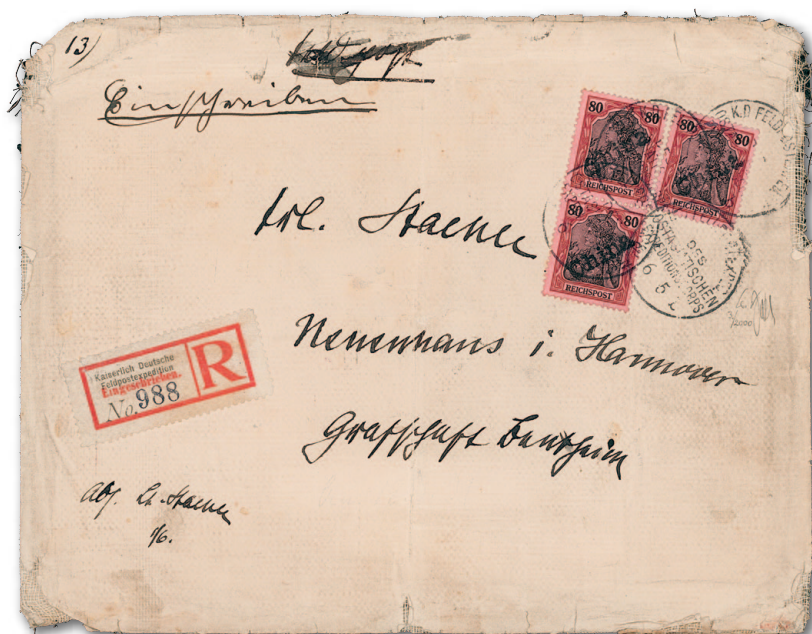 13)
Feldpost
Einschreiben
80 80
REICHSPOST
China
80 80
REICHSPOST
China
80 80
REICHSPOST
China
K.D. FELDPOST
DES
OSTASIATISCHEN
EXPEDITIONSCORPS
6 5
2/2000
Frl. Staehle
Neuenhaus i. Hannover
Grafschaft Bentheim
Kaiserlich Deutsche
Feldpostexpedition
Eingeschrieben.
No. 988
R
Abs. Lt. Staehle
1/6.